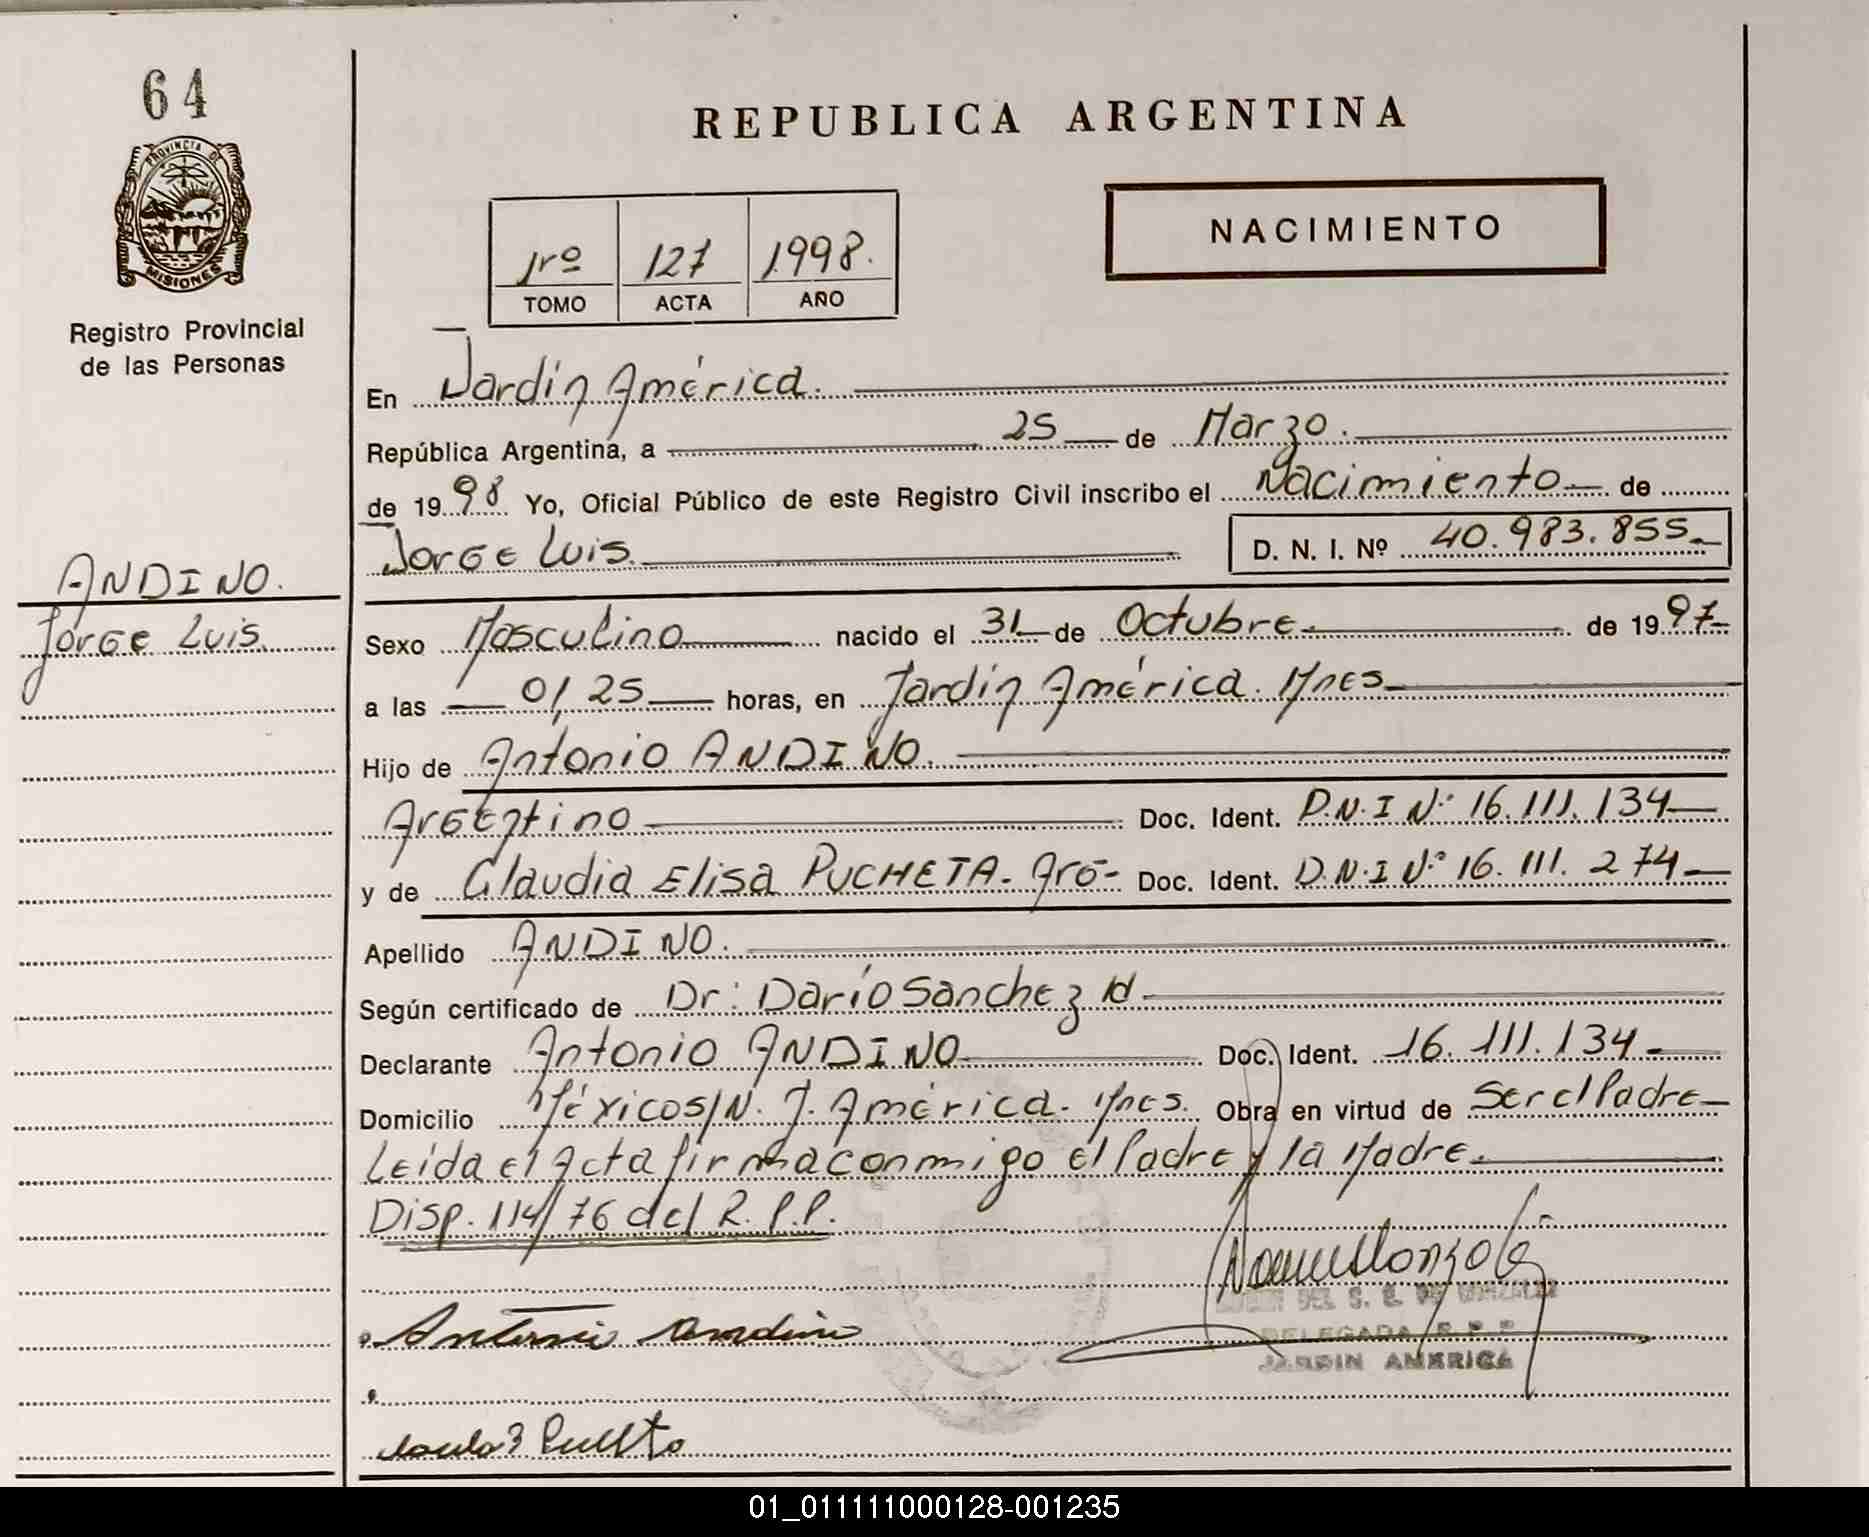 64
PROVINCIA DE
MISIONES
Registro Provincial
de las Personas
ANDINO.
Jorge Luis.
REPUBLICA ARGENTINA
1rº 127 1.998.
TOMO ACTA AÑO
NACIMIENTO
En Jardín América.
República Argentina, a 25 de Marzo.
de 1998 Yo, Oficial Público de este Registro Civil inscribo el Nacimiento de
Jorge Luis. D. N. I. Nº 40.983.855
Sexo Masculino nacido el 31 de Octubre. de 1997
a las 01,25 horas, en Jardín América. Mnes
Hijo de Antonio ANDINO.
Argentino Doc. Ident. D.N.I Nº 16.111.134
y de Claudia Elisa PUCHETA. Arg Doc. Ident. D.N.I Nº 16.111.274
Apellido ANDINO.
Según certificado de Dr: Darío Sanchez
Declarante Antonio ANDINO Doc. Ident. 16.111.134
Domicilio México S/N. J. América. Mnes. Obra en virtud de Ser el Padre
Leída el Acta firma conmigo el Padre y la Madre.
Disp. 114/76 del R.P.P.
Antonio Andino
DELEGADA R.P.P
JARDIN AMERICA
01_011111000128-001235